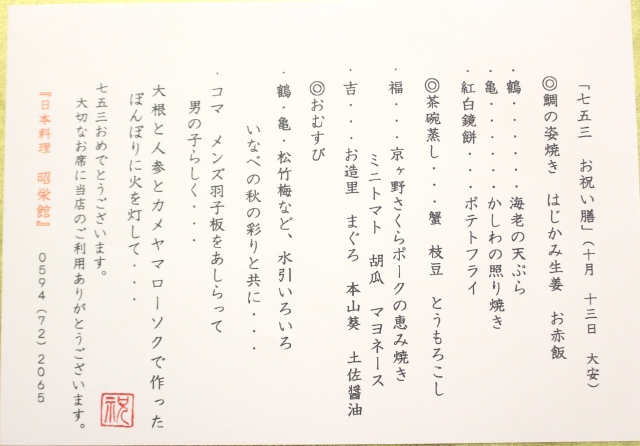 「七五三　お祝い膳」（十月　十三日　大安）
◎鯛の姿焼き　はじかみ生姜　お赤飯
・鶴・・・・・・海老の天ぷら
・亀・・・・・・かしわの照り焼き
・紅白鏡餅・・・・ポテトフライ
◎茶碗蒸し・・・蟹　枝豆　とうもろこし
・福・・・京ヶ野さくらポークの恵み焼き
ミニトマト　胡瓜　マヨネース
・吉・・・お造里　まぐろ　本山葵　土佐醤油
◎おむすび
・鶴・亀・松竹梅など、水引いろいろ
いなべの秋の彩りと共に・・・
・コマ　メンズ羽子板をあしらって
男の子らしく・・・
大根と人参とカメヤマローソクで作った
ぼんぼりに火を灯して・・・
七五三おめでとうございます。
大切なお席に当店のご利用ありがとうございます。
『日本料理　昭栄館』　0594（72）2065
祝